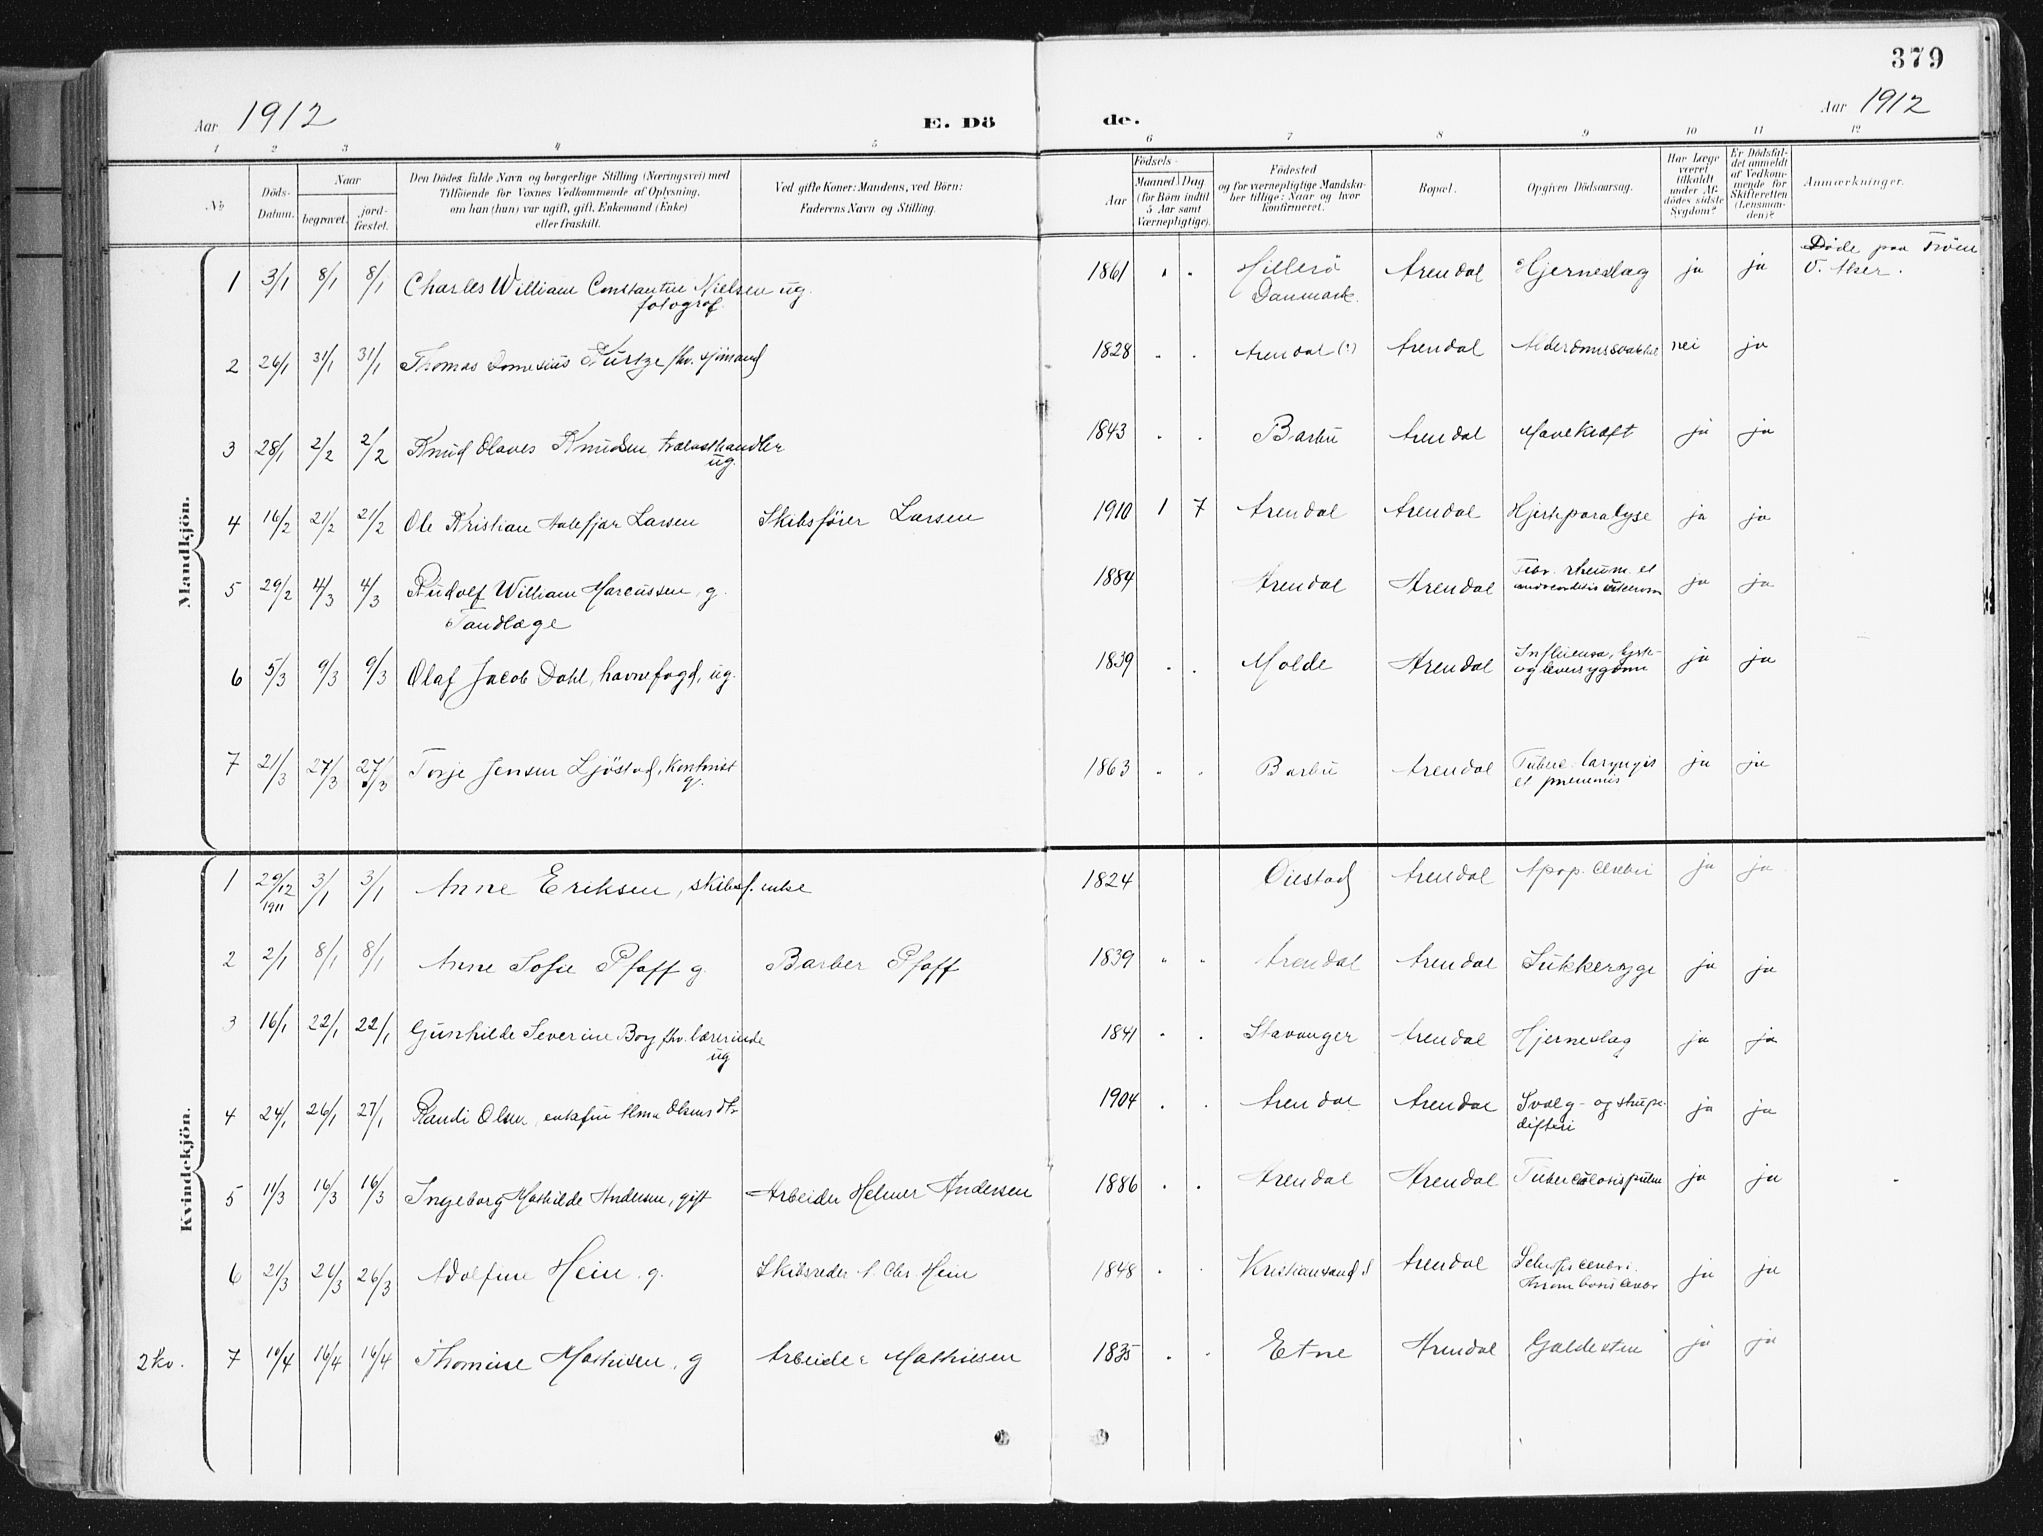 379
Aar 1912
E. Dö
de.
Aar 1912
1 2 3 4 5 6 7 8 9 10 11 12
№
Döds-Datum.
Naar
begravet.
jord-fæstet.
Den Dödes fulde Navn og borgerlige Stilling (Næringsvei) med
Tilföiende for Voxnes Vedkommende af Oplysning,
om han (hun) var ugift, gift, Enkemand (Enke)
eller fraskilt.
Ved gifte Koner: Mandens, ved Börn:
Faderens Navn og Stilling.
Födsels-
Aar
Maaned Dag
(for Börn indtil
5 Aar samt
Værnepligtige).
Födested
og for værnepligtige Mandska-
ber tillige: Naar og hvor
konfirmeret.
Bopæl.
Opgiven Dödsaarsag.
Har Læge
været
tilkaldt
under Af-
dödes sidste
Sygdom?
Er Dödsfal-
det anmeldt
af Vedkom-
mende for
Skifteretten
(Lensman-
den)?
Anmærkninger.
Mandkjön.
1 3/1 8/1 8/1 Charles William Constantin Nielsen ug. 1861 Hillerö Arendal Hjerneslag ja ja Döde paa
fotograf. Danmark.
2 26/1 31/1 31/1 Thomas Kurtze fhv. sjömand 1828 Arendal (?) Arendal nei ja
3 28/1 2/2 2/2 Knud Olaves Knudsen, trælasthandler 1843 Barbu Arendal Mavekræft ja ja
ug.
4 16/2 21/2 21/2 Ole Kristian Aalefjær Larsen Skibsfører Larsen 1910 1 7 Arendal Arendal Hjerteparalyse ja ja
5 29/2 4/3 4/3 Rudolf William Marcussen, g. 1884 Arendal Arendal Febr. rheum. et ja ja
Tandlæge
6 5/3 9/3 9/3 Olaf Jacob Dahl, havnefogd, ug. 1839 Molde Arendal Influensa, ja ja
og leversygdom
7 21/3 27/3 27/3 Torje Jensen Ljöstad, Kontorist 1863 Barbu Arendal Tuberc. laryngis ja ja
g. et pneumonis
Kvindekjön.
1 29/12 1911 3/1 3/1 Anne Eriksen, skibsf. enke 1824 Öiestad Arendal Apop. cerebri ja ja
2 2/1 8/1 8/1 Anne Sofie Pfaff g. Barber Pfaff 1839 Arendal Arendal Sukkersyge ja ja
3 16/1 22/1 22/1 Gunhilde Severine Boy fhv. lærerinde 1841 Stavanger Arendal Hjerneslag ja ja
ug
4 24/1 26/1 27/1 Randi Olsen, enkefru Alma Olsens dtr 1904 Arendal Arendal Svælg- og strupe- ja ja
difteri
5 11/3 16/3 16/3 Ingeborg Mathilde Andersen, gift Arbeider Helmer Andersen 1886 Arendal Arendal Tuberculosis pulm ja ja
6 21/3 26/3 26/3 Adolfine Hein, g. Skibsreder A. Chr. Hein 1848 Kristiansand S Arendal ja ja
Thrombosis cerebr
2 Kv. 7 10/4 16/4 16/4 Thomine Mathisen, g Arbeider Mathiesen 1835 Etne Arendal Galdesten ja ja